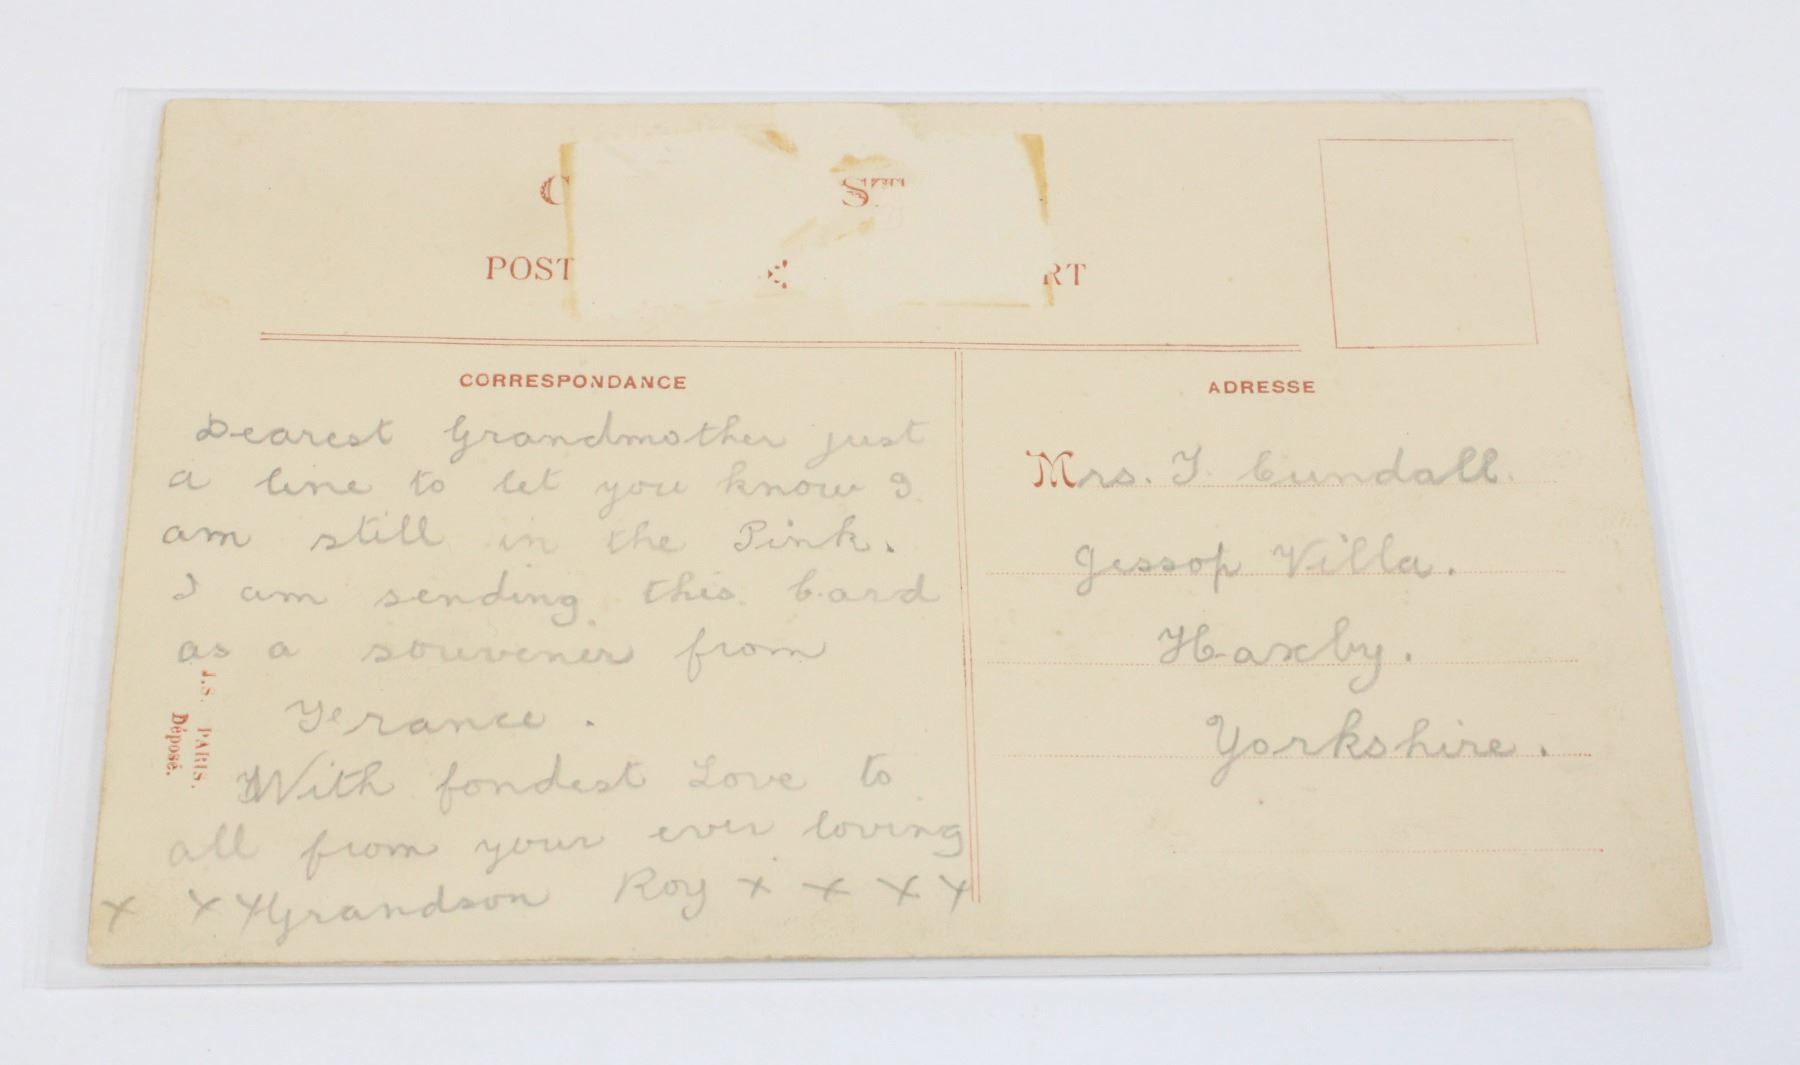 POST RT
CORRESPONDANCE
Dearest Grandmother just
a line to let you know I
am still in the Pink.
I am sending this Card
as a souvener from
France.
With fondest Love to
all from your ever loving
x x x Grandson Roy x x x x
J.S. PARIS.
Déposé.
ADRESSE
Mrs. T. Cundall.
Jessop Villa.
Haxby.
Yorkshire.